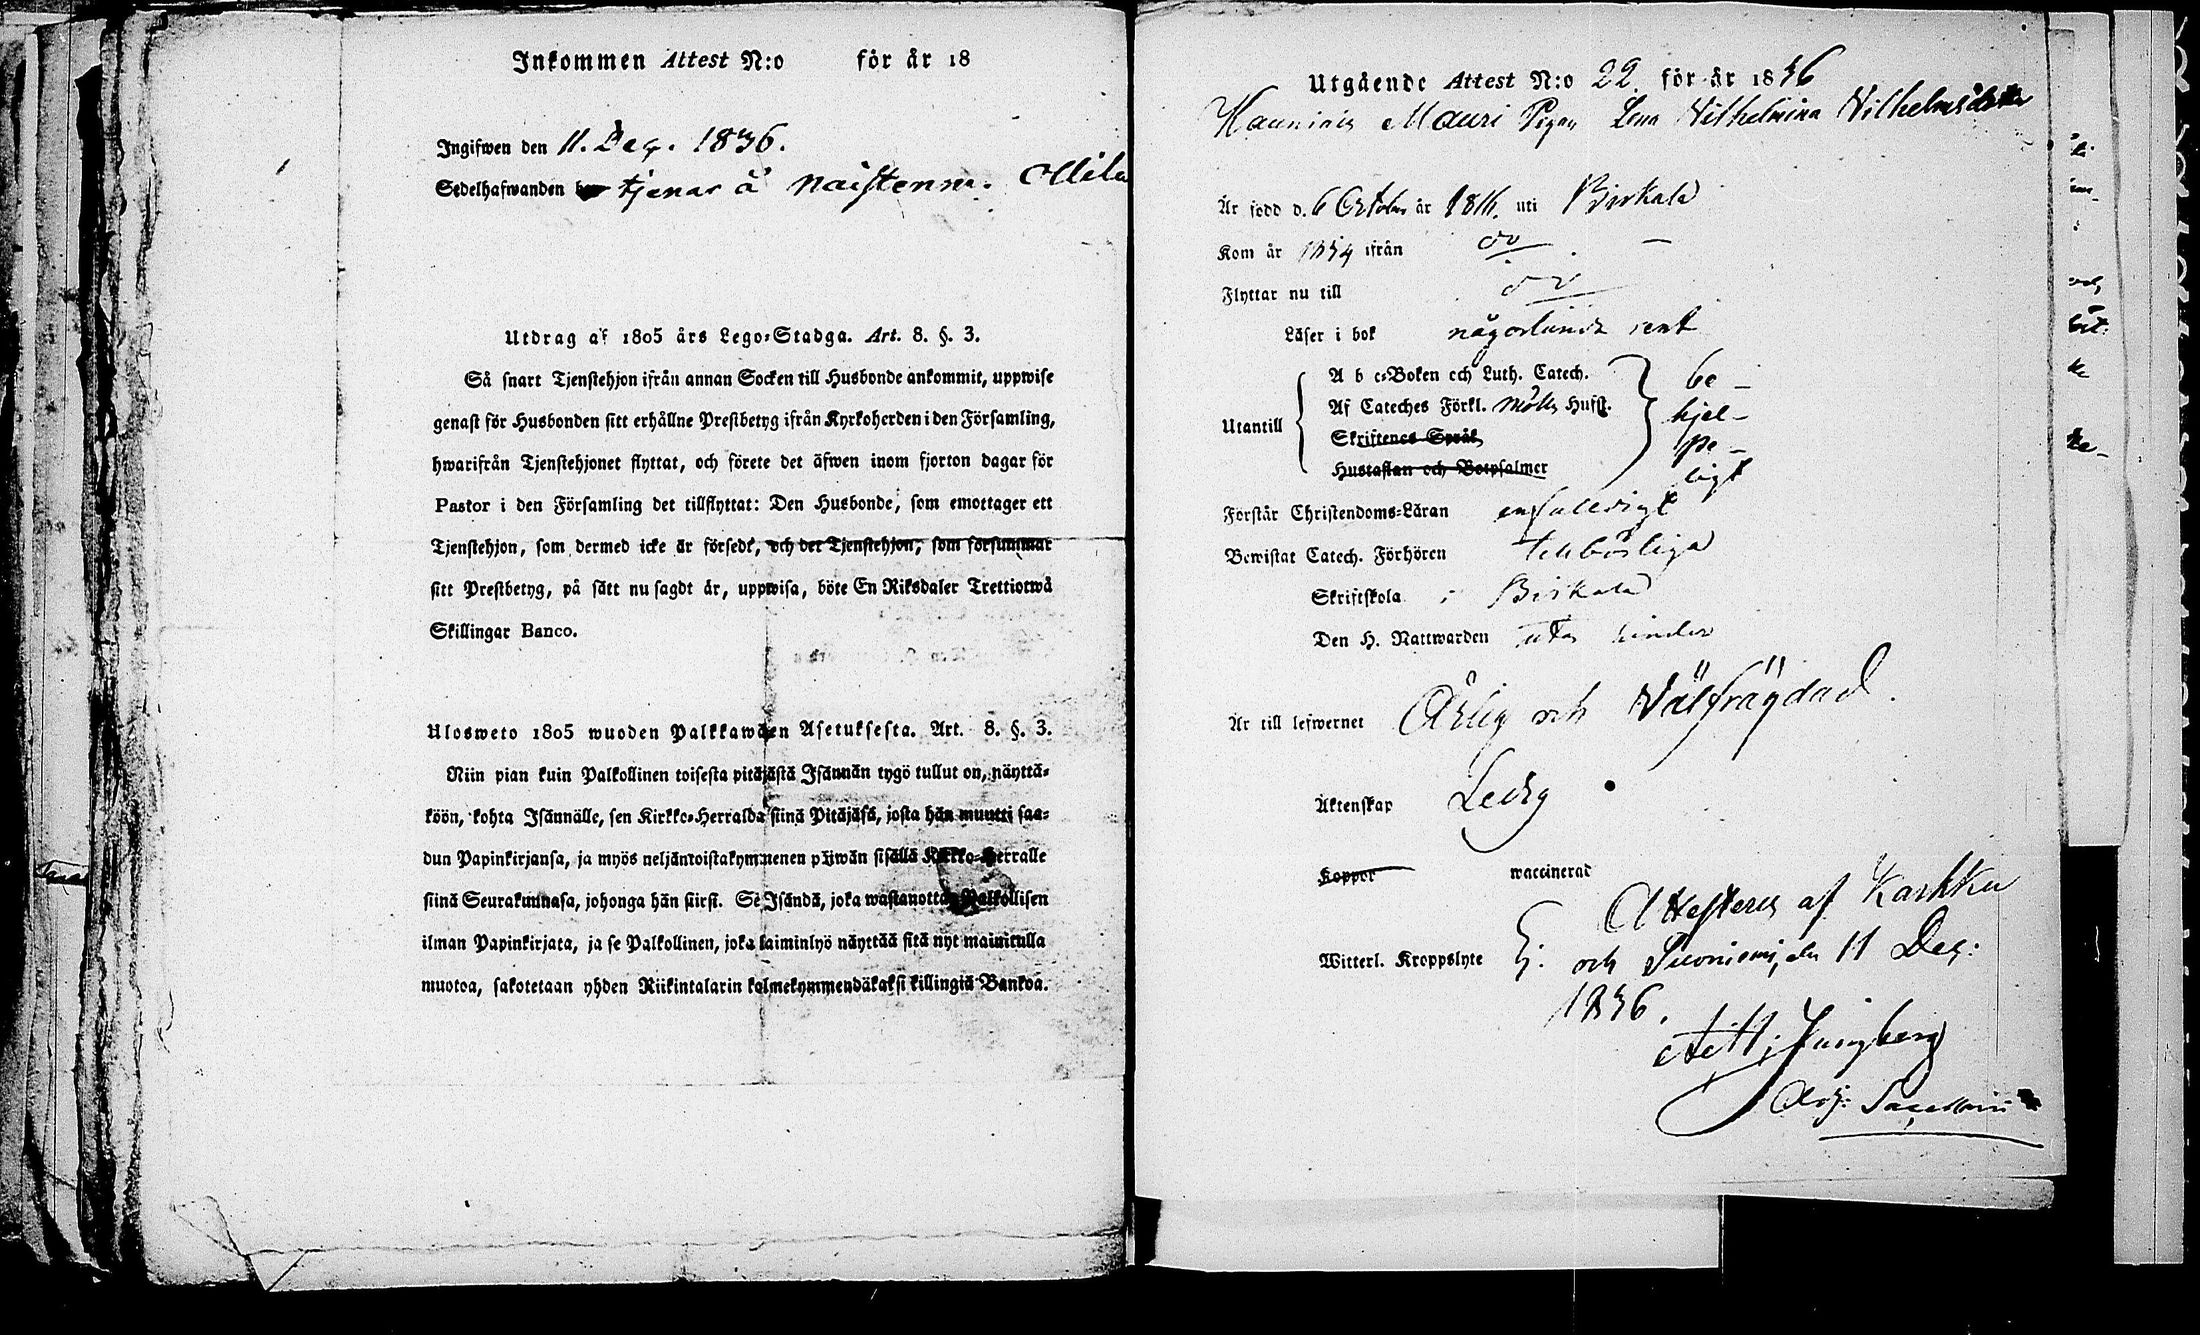 Inkommen Attest N:o för år 18
Ingifwen den 11. Dec. 1836.
Sedelhafwanden tjenar å Naistenm. Ollila
Utdrag af 1805 års Lego-Stadga. Art. 8. §. 3.
Så snart Tjenstehjon ifrån annan Socken till Husbonde ankommit, uppwise
genast för Husbonden sitt erhållne Prestbetyg ifrån Kyrkoherden i den Församling,
hwarifrån Tjenstehjonet flyttat, och förete det äfwen inom fjorton dagar för
Pastor i den Församling det tillflyttat: Den Husbonde, som emottager ett
Tjenstehjon, som dermed icke är försedt, och det Tjenstehjon, som försummar
sitt Prestbetyg, på sätt nu sagdt är, uppwisa, böte En Riksdaler Trettiotwå
Skillingar Banco.
Ulosweto 1805 wuoden Palkkawäen Asetuksesta. Art. 8. §. 3.
Niin pian kuin Palkollinen toisesta pitäjästä Isännän tygö tullut on, näyttä-
köön, kohta Isännälle, sen Kirkko-Herralda siinä Pitäjäsä, josta hän muutti saa-
dun Papinkirjansa, ja myös neljäntoistakymmenen päiwän sisällä Kirkko-Herralle
siinä Seurakunnasa, johonga hän siirsi. Se Isändä, joka wastanottaa Palkollisen
ilman Papinkirjata, ja se Palkollinen, joka laiminlyö näyttää sitä nyt mainitulla
muotoa, sakotetaan yhden Riikintalarin kolmekymmendäkaksi killingiä Bankoa.
Utgående Attest N:o 22. för år 1836
Hauniais Mauri Pigan Lena Wilhelmina Wilhelmsdotter
Är född d. 6 October år 1816. uti Birkala
Kom år 1834 ifrån do
Flyttar nu till do
Läser i bok någorlunda rent
A b c-Boken och Luth. Catech. be-
Af Cateches Förkl. Möll. Hufst. hjel-
Utantill
Skriftenes Språk pe-
Hustaflan och Botpsalmer ligt
Förstår Christendoms-Läran enfaldigt
Bewistat Catech. Förhören tillbörliga
Skriftskola i Birkala
Den H. Nattwarden utan hinder
Är till lefwernet Ärlig och Välfrägdad.
Äktenskap Ledig
Koppor waccinerad
Attesteras af Karkku
Witterl. Kroppslyte Ej. och Suoniemi, den 11 Dec:
1836.
Ljungberg
Adj: Sacellani